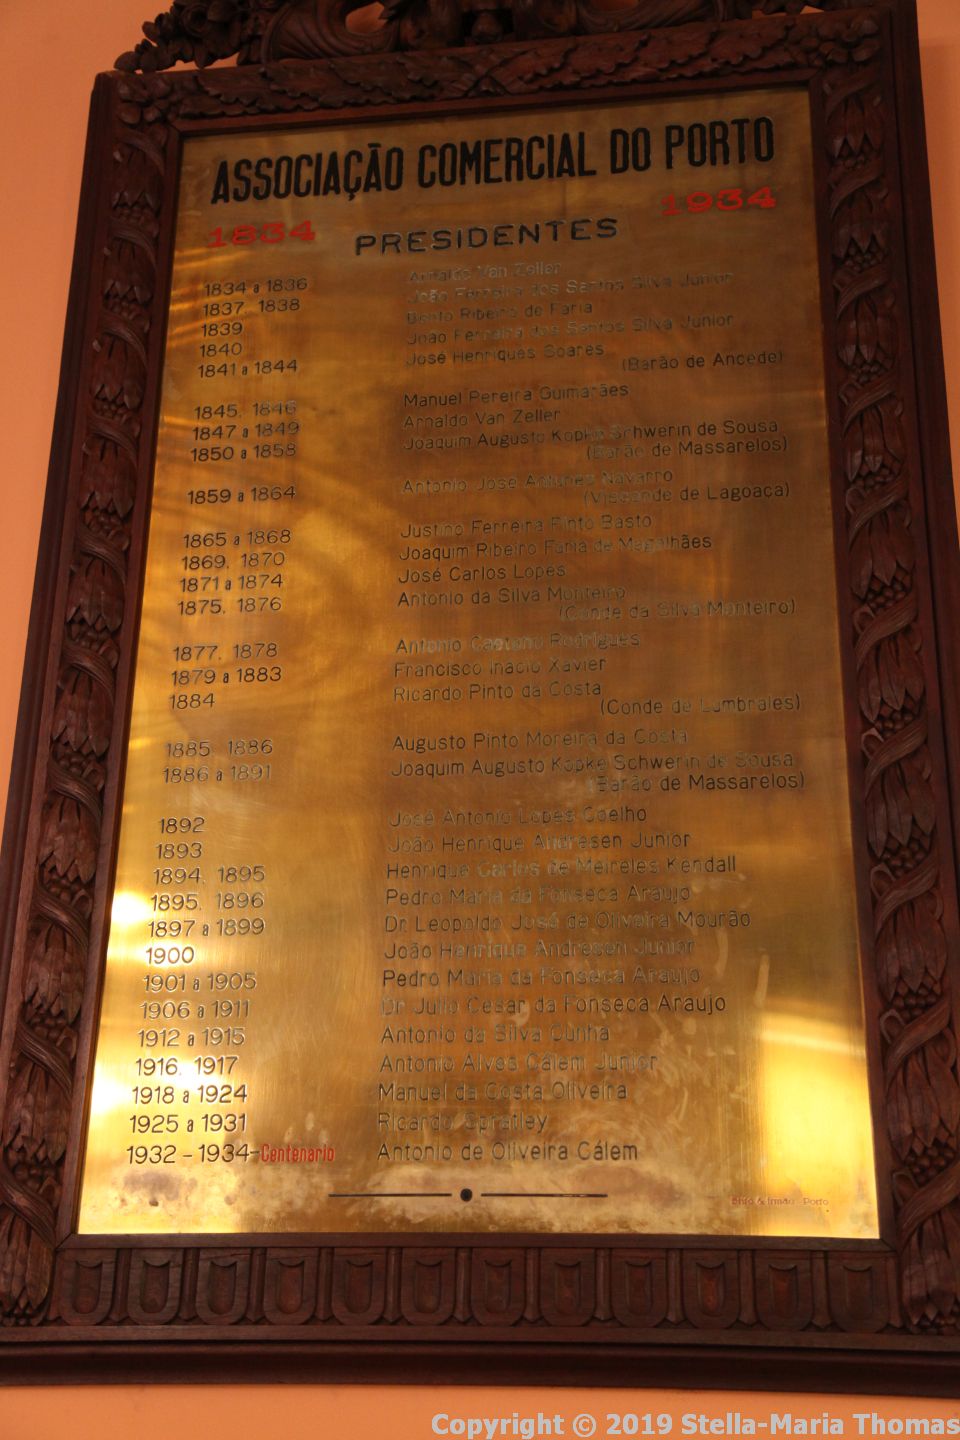 ASSOCIAÇÃO COMERCIAL DO PORTO
1834 1934
PRESIDENTES
1834 a 1836 Arnaldo Van Zeller
1837, 1838 João Ferreira dos Santos Silva Junior
1839 Bento Ribeiro de Faria
1840 João Ferreira dos Santos Silva Junior
1841 a 1844 José Henriques Soares
(Barão de Ancede)
1845, 1846 Manuel Pereira Guimarães
1847 a 1849 Arnaldo Van Zeller
1850 a 1858 Joaquim Augusto Kopke Schwerin de Sousa
(Barão de Massarelos)
1859 a 1864 Antonio José Antunes Navarro
(Visconde de Lagoaça)
1865 a 1868 Justino Ferreira Pinto Basto
1869, 1870 Joaquim Ribeiro Faria de Magalhães
1871 a 1874 José Carlos Lopes
1875, 1876 Antonio da Silva Monteiro
(Conde da Silva Monteiro)
1877, 1878 Antonio Caetano Rodrigues
1879 a 1883 Francisco Inacio Xavier
1884 Ricardo Pinto da Costa
(Conde de Lumbrales)
1885, 1886 Augusto Pinto Moreira da Costa
1886 a 1891 Joaquim Augusto Kopke Schwerin de Sousa
(Barão de Massarelos)
1892 José Antonio Lopes Coelho
1893 João Henrique Andresen Junior
1894, 1895 Henrique Carlos de Meireles Kendall
1895, 1896 Pedro Maria da Fonseca Araujo
1897 a 1899 Dr. Leopoldo José de Oliveira Mourão
1900 João Henrique Andresen Junior
1901 a 1905 Pedro Maria da Fonseca Araujo
1906 a 1911 Dr. Julio Cesar da Fonseca Araujo
1912 a 1915 Antonio da Silva Cunha
1916, 1917 Antonio Alves Cálem Junior
1918 a 1924 Manuel da Costa Oliveira
1925 a 1931 Ricardo Spratley
1932 - 1934-Centenario Antonio de Oliveira Cálem
Brito & Irmão - Porto
Copyright © 2019 Stella-Maria Thomas